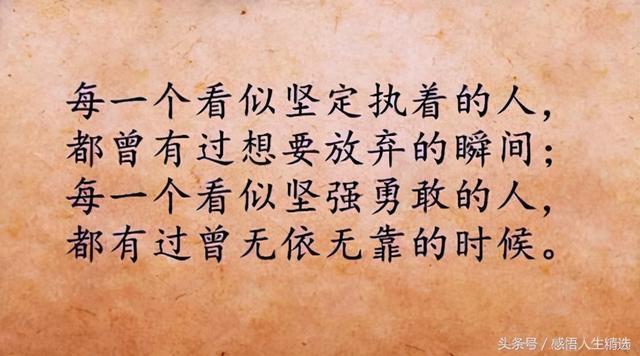 每一个看似坚定执着的人，
都曾有过想要放弃的瞬间；
每一个看似坚强勇敢的人，
都有过曾无依无靠的时候。
头条号/感悟人生精选